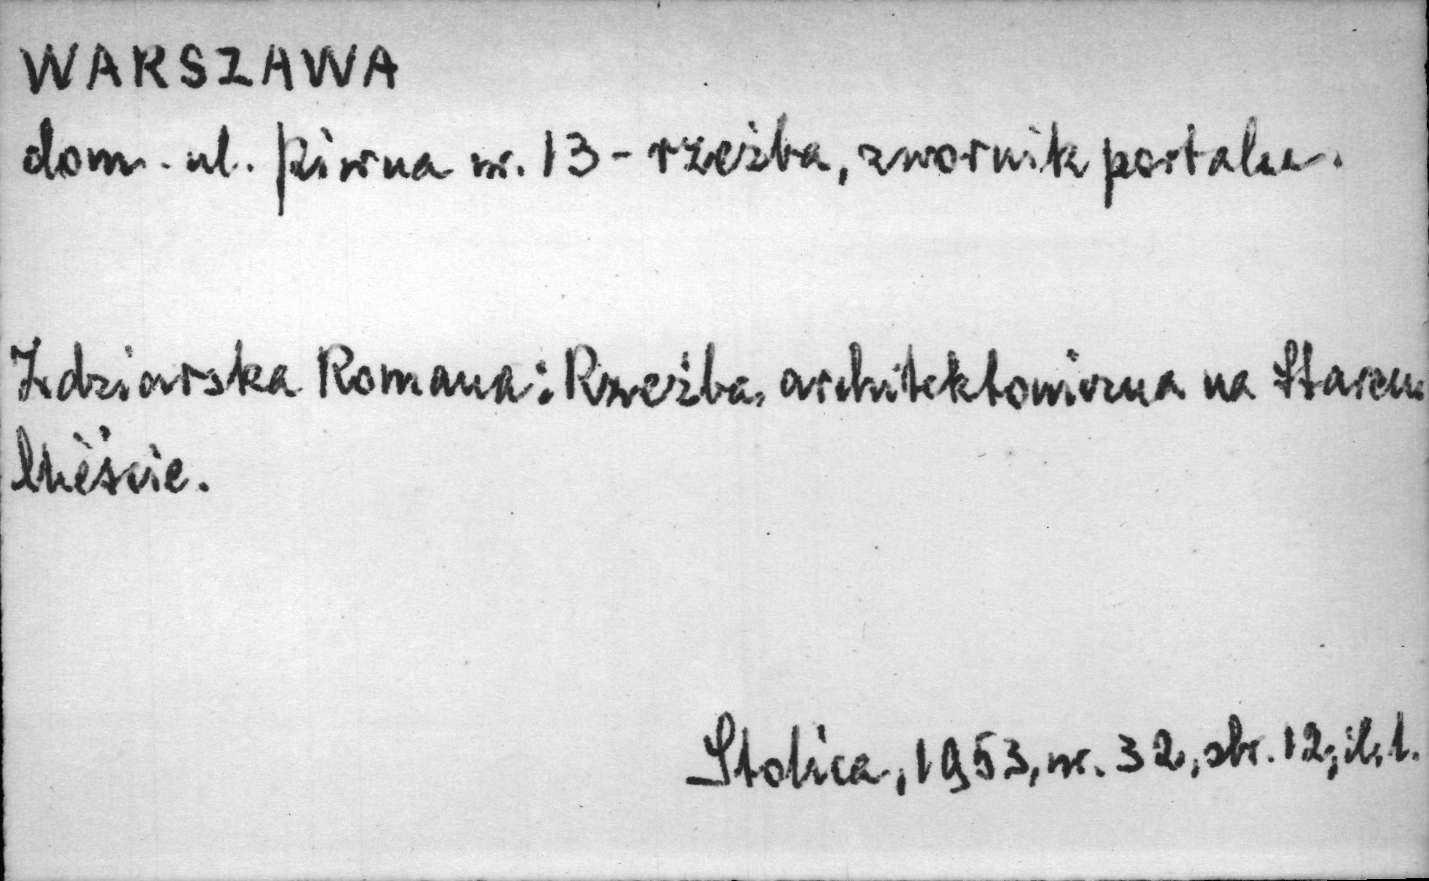 WARSZAWA
dom. ul. Piwna nr. 13 - rzeźba, zwornik portalu.
Zdziarska Romana: Rzeźba architektoniczna na Starem
Mieście.
Stolica, 1953, nr. 32, str. 12, il. 1.